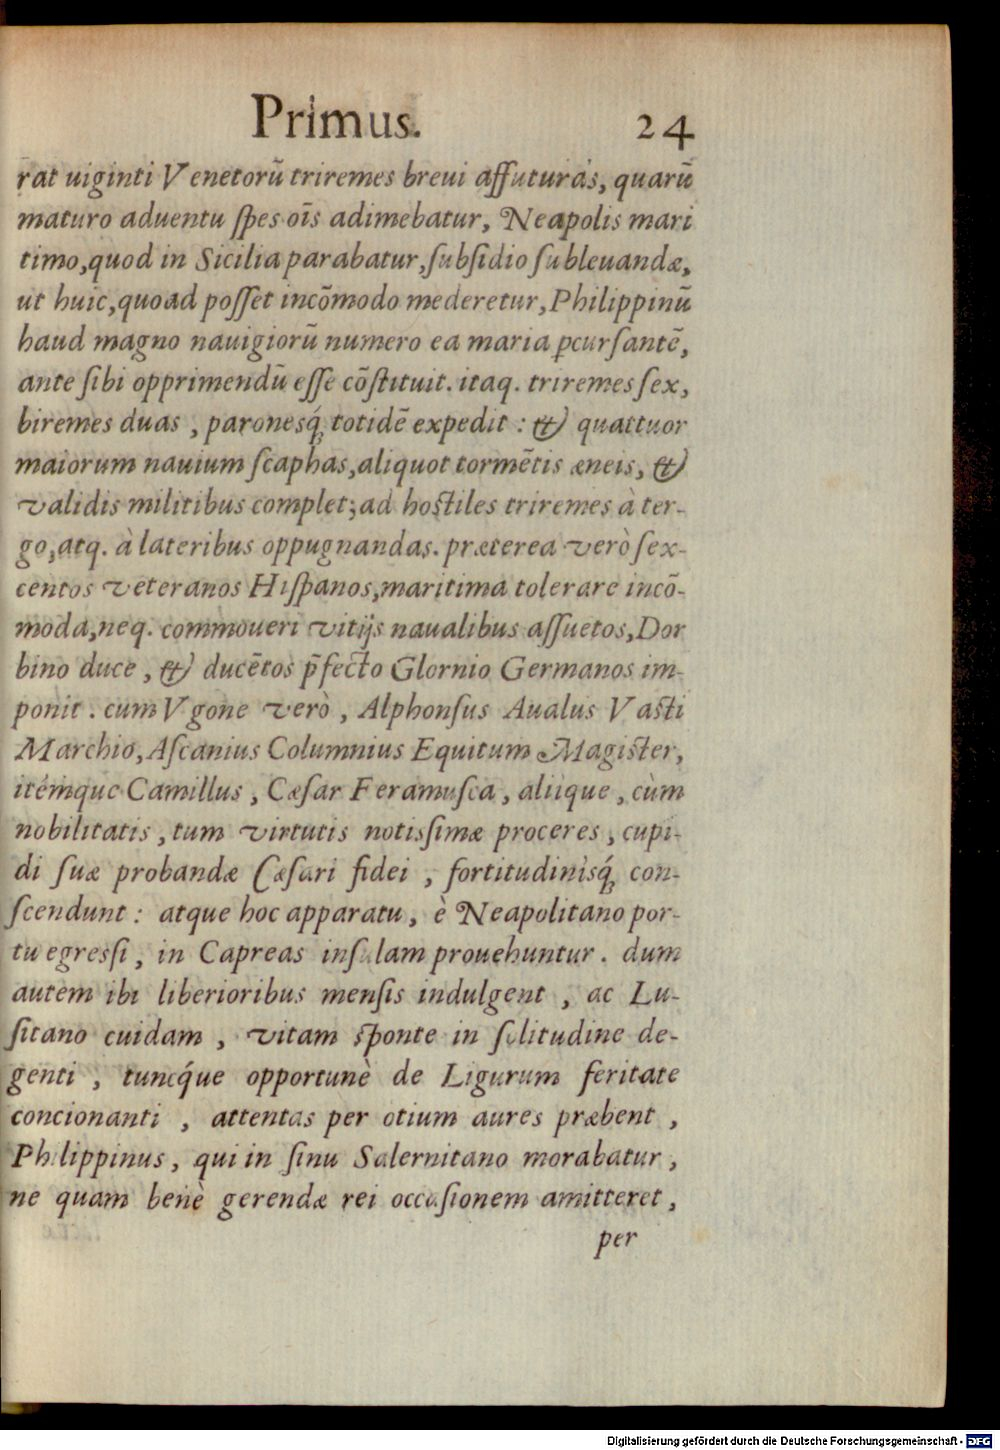 Primus. 24
rat uiginti Venetorũ triremes breui affuturás, quarũ
maturo aduentu ſpes oĩs adimebatur, Neapolis mari
timo,quod in Sicilia parabatur,ſubſidio ſubleuandæ,
ut huic,quoad poſſet incõmodo mederetur,Philippinũ
haud magno nauigiorũ numero ea maria ꝑcurſantẽ,
ante ſibi opprimendũ eſſe cõſtituit. itaq. triremes ſex,
biremes duas , paronesq́ꝫ totidẽ expedit : & quattuor
maiorum nauium ſcaphas,aliquot tormẽtis æneis, &
validis militibus complet;ad hoſtiles triremes à ter-
go,atq. à lateribus oppugnandas. præterea verò ſex-
centos veteranos Hiſpanos,maritima tolerare incõ-
moda,neq. commoueri vitijs naualibus aſſuetos,Dor
bino duce , & ducẽtos p̃fecto Glornio Germanos im-
ponit . cum Vgone verò , Alphonſus Aualus Vaſti
Marchio,Aſcanius Columnius Equitum Magiſter,
itémque Camillus , Cæſar Feramuſca , aliique , cùm
nobilitatis , tum virtutis notisſimæ proceres , cupi-
di ſuæ probandæ Cæſari fidei , fortitudinisq́ꝫ con-
ſcendunt : atque hoc apparatu, è Neapolitano por-
tu egresſi , in Capreas inſulam prouehuntur . dum
autem ibi liberioribus menſis indulgent , ac Lu-
ſitano cuidam , vitam ſponte in ſolitudine de-
genti , tuncq́ue opportunè de Ligurum feritate
concionanti , attentas per otium aures præbent ,
Philippinus , qui in ſinu Salernitano morabatur ,
ne quam benè gerendæ rei occaſionem amitteret ,
per
Digitalisierung gefördert durch die Deutsche Forschungsgemeinschaft - DFG